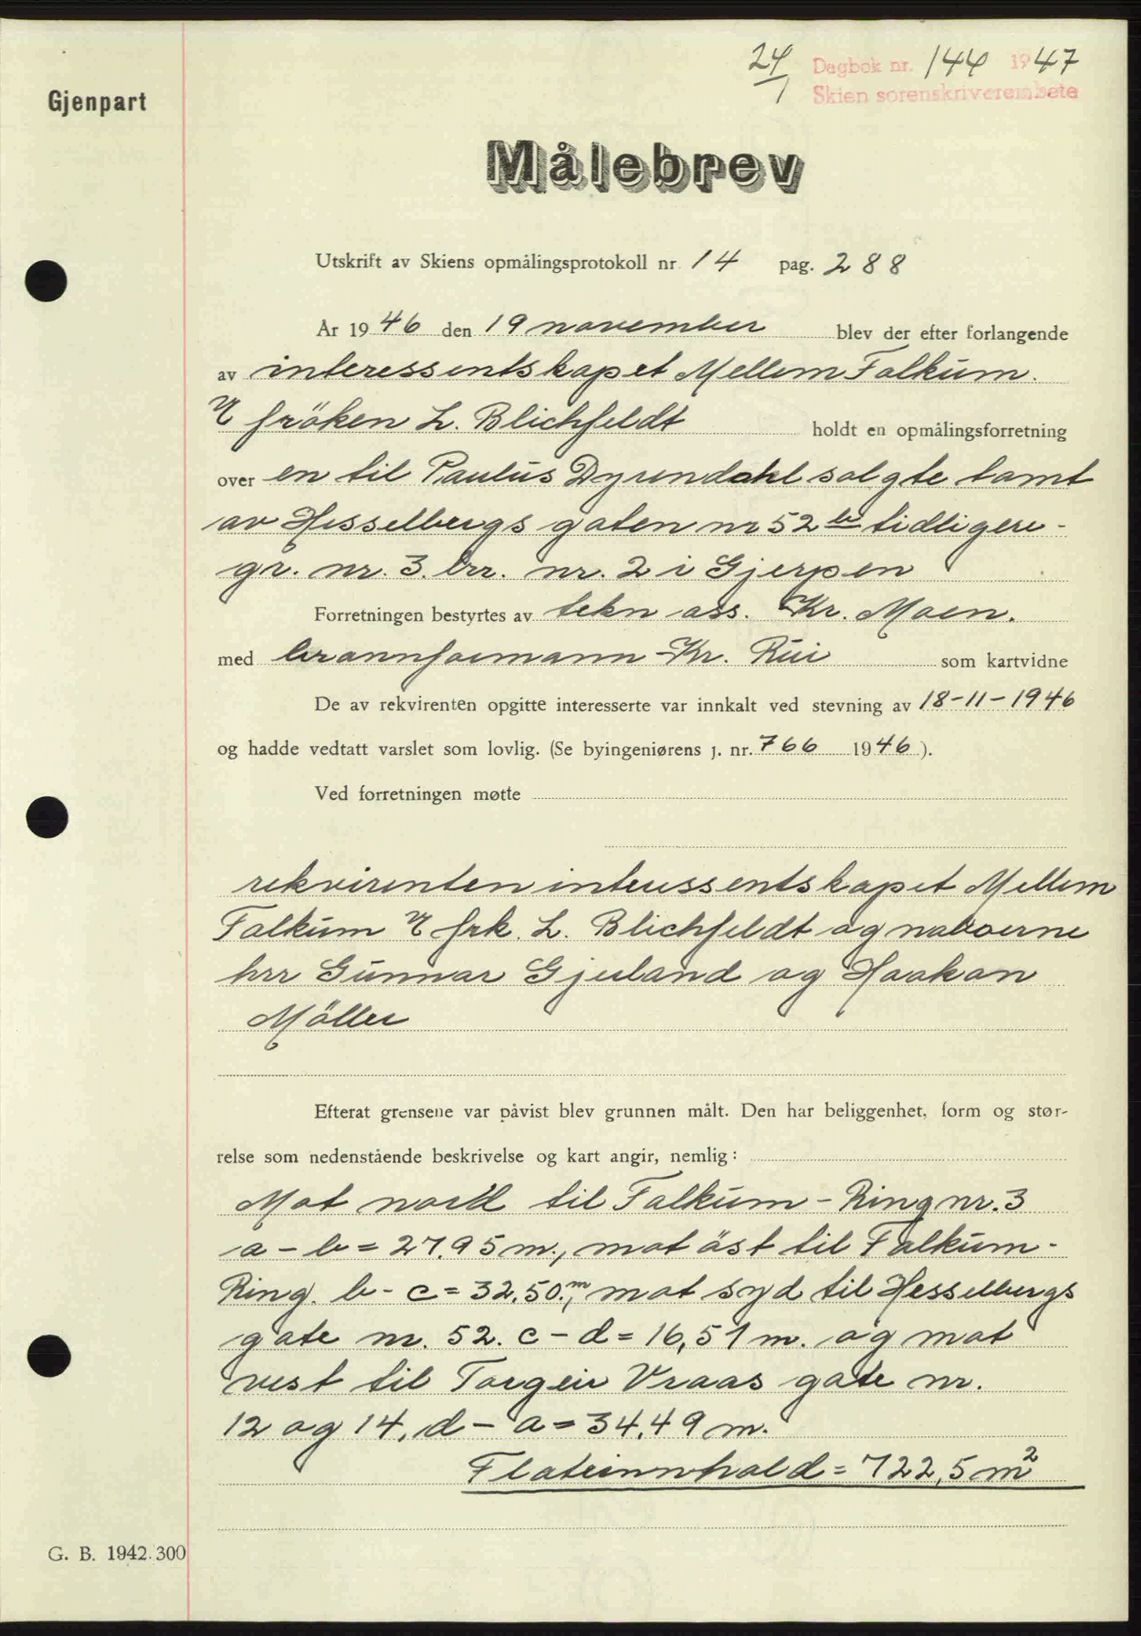 24/1 Dagbok nr. 144 1947
Skien sorenskriverembete
Gjenpart
Målebrev
Utskrift av Skiens opmålingsprotokoll nr 14 pag. 288
År 1946 den 19 november blev der efter forlangende
av interessentskapet Mellem Falkum.
v/ fröken L. Blichfeldt holdt en opmålingsforretning
over en til Paulus Dyrendahl solgte tomt
av Hesselbergs gaten nr 52 b tidligere
gr. nr. 3. br. nr. 2 i Gjerpen
Forretningen bestyrtes av tekn ass. Kr. Moen.
med brannformann Kr. Rui som kartvidne
De av rekvirenten opgitte interesserte var innkalt ved stevning av 18-11-1946
og hadde vedtatt varslet som lovlig. (Se byingeniørens j. nr. 766 1946).
Ved forretningen møtte
rekvirenten interessentskapet Mellem
Falkum v/ frk. L. Blichfeldt og naboerne
hrr Gunnar Gjerland og Haakon
Möller
Efterat grensene var påvist blev grunnen målt. Den har beliggenhet, form og stør-
relse som nedenstående beskrivelse og kart angir, nemlig:
Mot nord til Falkum-Ring nr. 3
a - b = 27,95 m., mot öst til Falkum-
Ring. b - c = 32,50 m., mot syd til Hesselbergs
gate nr. 52. c - d = 16,51 m. og mot
vest til Torgeir Vraas gate nr.
12 og 14, d - a = 34,49 m.
Flateinnhold = 722,5 m²
G. B. 1942. 300